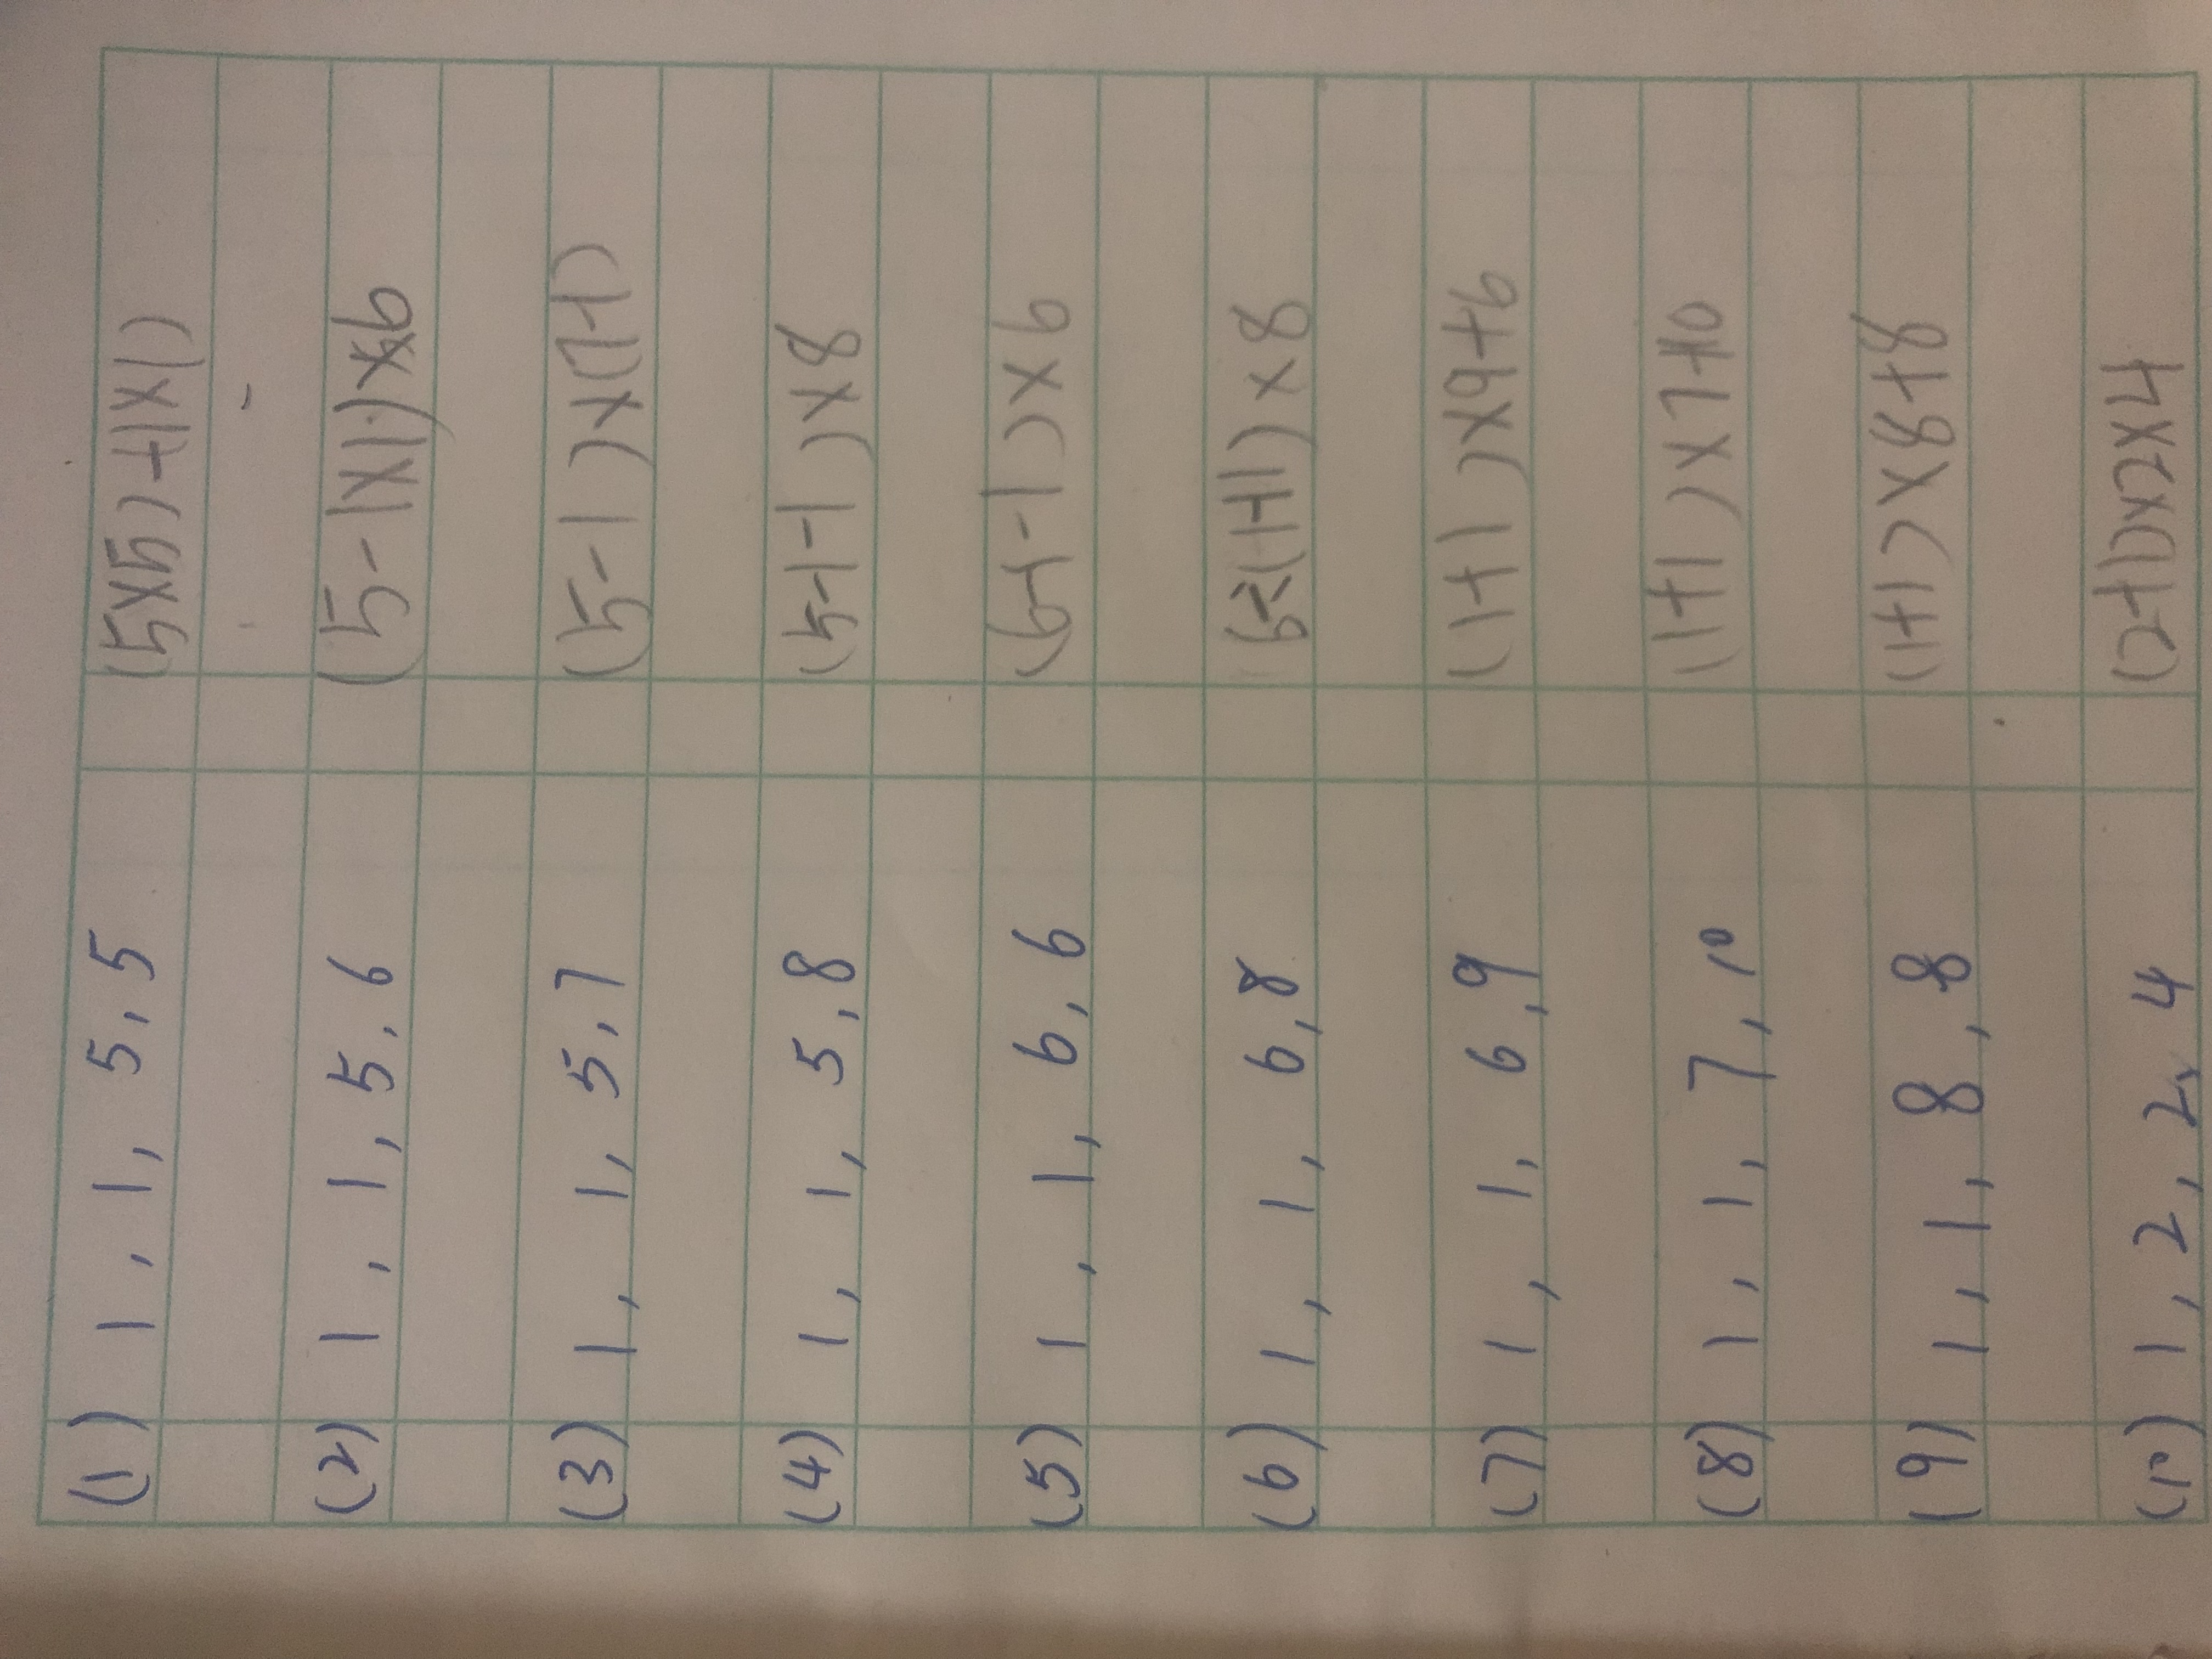 (1) 1, 1, 5, 5 (5×5)-(1×1)
(2) 1, 1, 5, 6 (5-1×1)×6
(3) 1, 1, 5, 7 (5-1)×(7-1)
(4) 1, 1, 5, 8 (5-1-1)×8
(5) 1, 1, 6, 6 (6-1-1)×6
(6) 1, 1, 6, 8 6÷(1+1)×8
(7) 1, 1, 6, 9 (1+1)×9+6
(8) 1, 1, 7, 10 (1+1)×7+10
(9) 1, 1, 8, 8 (1+1)×8+8
(10) 1, 2, 2, 4 (2+1)×2×4